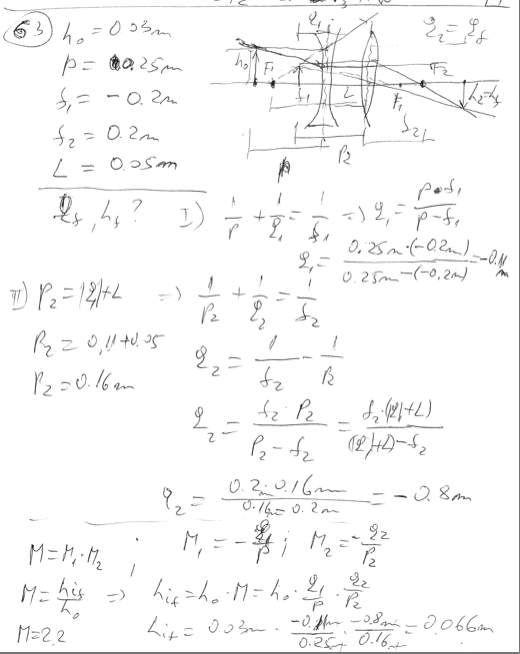 63 h₀ = 0.03m
p = 0.25m
f₁ = -0.2m
f₂ = 0.2m
L = 0.05m
q₁ q₂ = q_f
h₀ F₁ f₁ L F₁ F₂ h₂=h_f
f₂
p P₂
q_f, h_f? I) 1/p + 1/q₁ = 1/f₁ => q₁ = p·f₁/(p-f₁)
q₁ = 0.25m·(-0.2m)/(0.25m-(-0.2m)) = -0.11m
II) P₂ = |q₁|+L => 1/P₂ + 1/q₂ = 1/f₂
P₂ = 0,11+0.05
q₂ = 1/f₂ - 1/P₂
P₂ = 0.16m
q₂ = f₂·P₂/(P₂-f₂) = f₂·(|q₁|+L)/((|q₁|+L)-f₂)
q₂ = 0.2m·0.16m/(0.16m-0.2m) = -0.8m
M = M₁·M₂ ; M₁ = -q₁/p ; M₂ = -q₂/P₂
M = hif/h₀ => hif = h₀·M = h₀·q₁/p·q₂/P₂
M = 2.2 hif = 0.03m·-0.11m/0.25m·-0.8m/0.16m = 0.066m